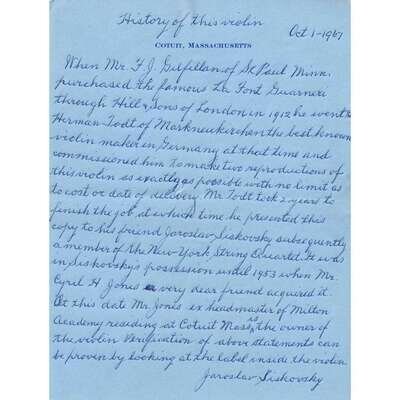 History of this violin
Oct 1-1961
COTUIT, MASSACHUSETTS
When Mr. F. J. Gilfillan of St. Paul Minn.
purchased the famous La Font Guarneri
through Hill & Sons of London in 1912 he went to
Herman Todt of Markneukirchen the best known
violin maker in Germany at that time and
commissioned him to make two reproductions of
this violin as exactly as possible with no limit as
to cost or date of delivery. Mr. Todt took 2 years to
finish the job, at which time he presented this
copy to his friend Jaroslav Siskovsky subsequently
a member of the New York String Quartet. It was
in Siskovsky's possession until 1953 when Mr.
Cyril H. Jones a very dear friend acquired it.
At this date Mr. Jones ex headmaster of Milton
Academy residing at Cotuit Mass, is the owner of
the violin. Verification of above statements can
be proven by looking at the label inside the violin
Jaroslav Siskovsky